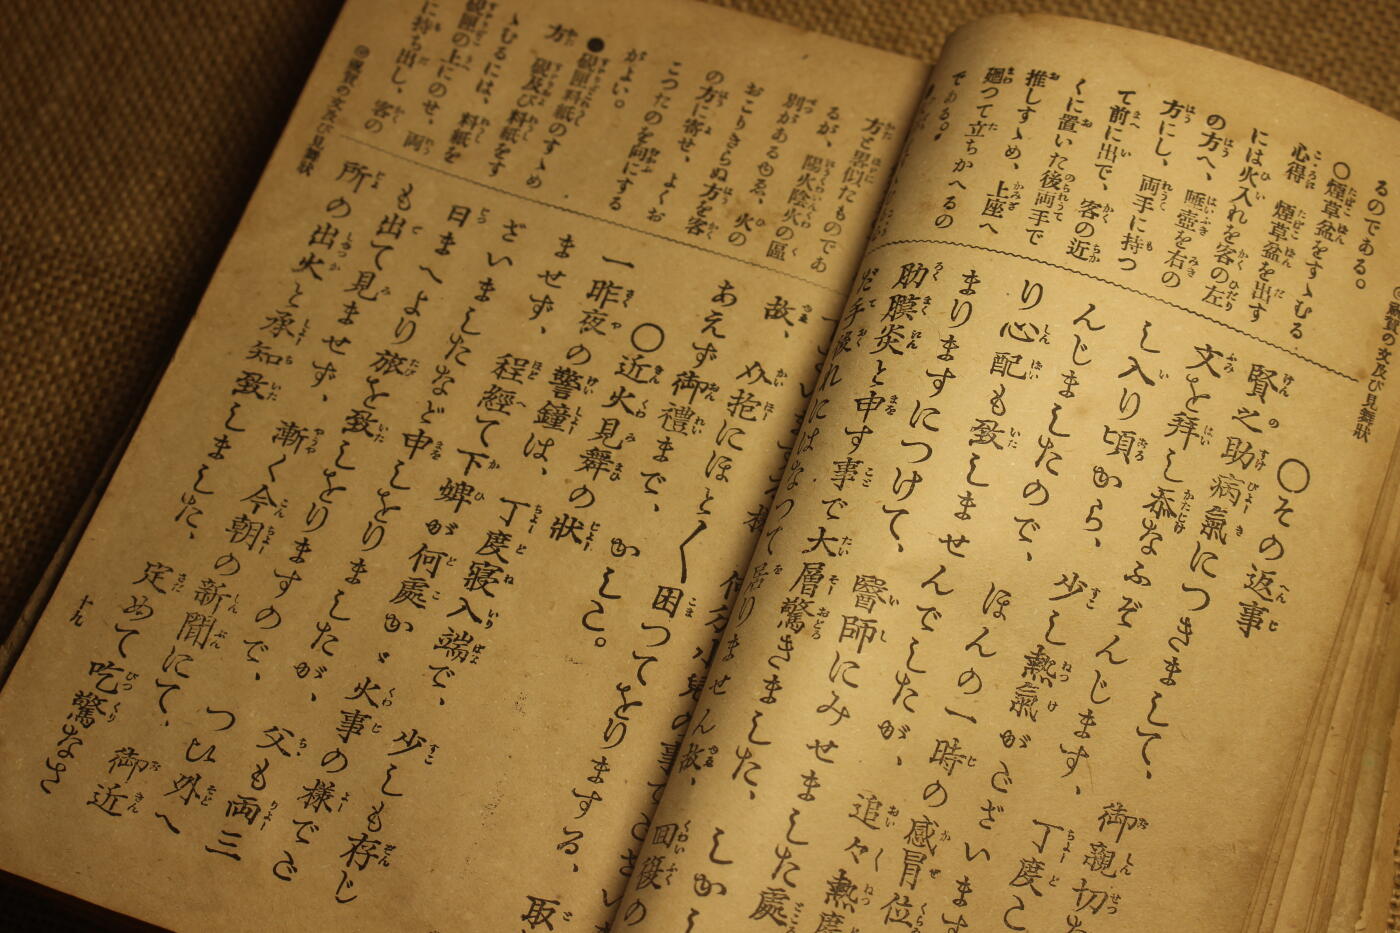 るのである。
○煙草盆をすゝむる
心得 煙草盆を出す
には火入れを客の左
の方へ、唾壺を右の
方にし、両手に持つ
て前に出で、客の近
くに置いた後両手で
推しすゝめ、上座へ
廻つて立ちかへるの
である。
◎慶賀の文及び見舞狀
○その返事
賢之助病氣につきまして、御親切な
文を拜し忝なふぞんじます、丁度こ
し入り頃から、少し熱氣がございます
んじましたので、ほんの一時の感冒位
り心配も致しませんでしたが、追々熱度
まりますにつけて、醫師にみせました處
肋膜炎と申す事で大層驚きました、しかし
方と畧似たものであ
るが、陽火陰火の區
別があるゆゑ、火の
おこりきらぬ方を客
の方に寄せ、よくお
こつたのを向にする
がよい。
●硯匣料紙のすゝめ
方 硯及び料紙をす
ゝむるには、料紙を
硯匣の上にのせ、両
に持ち出し、客の
◎慶賀の文及び見舞狀
故、
あえず御禮まで、かしこ。
○近火見舞の狀
一昨夜の警鐘は、丁度寢入端で、少しも存じ
ませず、程經て下婢が何處かゞ火事の様でご
ざいましたなど申しをりましたが、父も両三
日まへより旅を致しをりますので、つひ外へ
も出て見ませず、漸く今朝の新聞にて、御近
所の出火と承知致しました、定めて吃驚なさ
十九